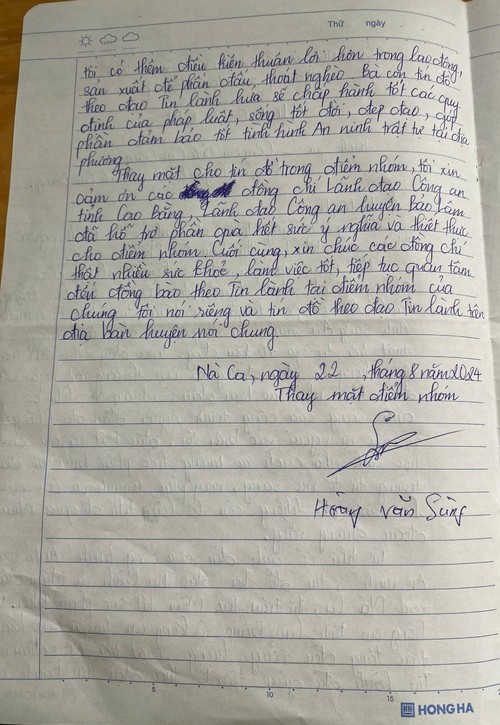 Thứ ngày
tôi, có thêm điều kiện thuận lợi hơn trong lao động,
sản xuất để phấn đấu, thoát nghèo Bà con tín đồ
theo đạo Tin lành hứa sẽ chấp hành tốt các quy
định của pháp luật, sống tốt đời, đẹp đạo, góp
phần đảm bảo tốt tình hình An ninh trật tự tại địa
phương.
Thay mặt cho tín đồ trong điểm nhóm, tôi xin
cảm ơn các đồng chí Lãnh đạo Công an
tỉnh Cao Bằng, Lãnh đạo Công an huyện Bảo Lâm
đã hỗ trợ phần quà hết sức ý nghĩa và thiết thực
cho điểm nhóm. Cuối cùng, xin chúc các đồng chí
thật nhiều sức khoẻ, làm việc tốt, tiếp tục quan tâm
đến đồng bào theo Tin lành tại điểm nhóm của
chúng tôi nói riêng và tín đồ theo đạo Tin lành trên
địa bàn huyện nói chung.
Nà Ca, ngày 22, tháng 8 năm 2024
Thay mặt điểm nhóm
Hoàng Văn Sùng
5 10 15
HONG HA